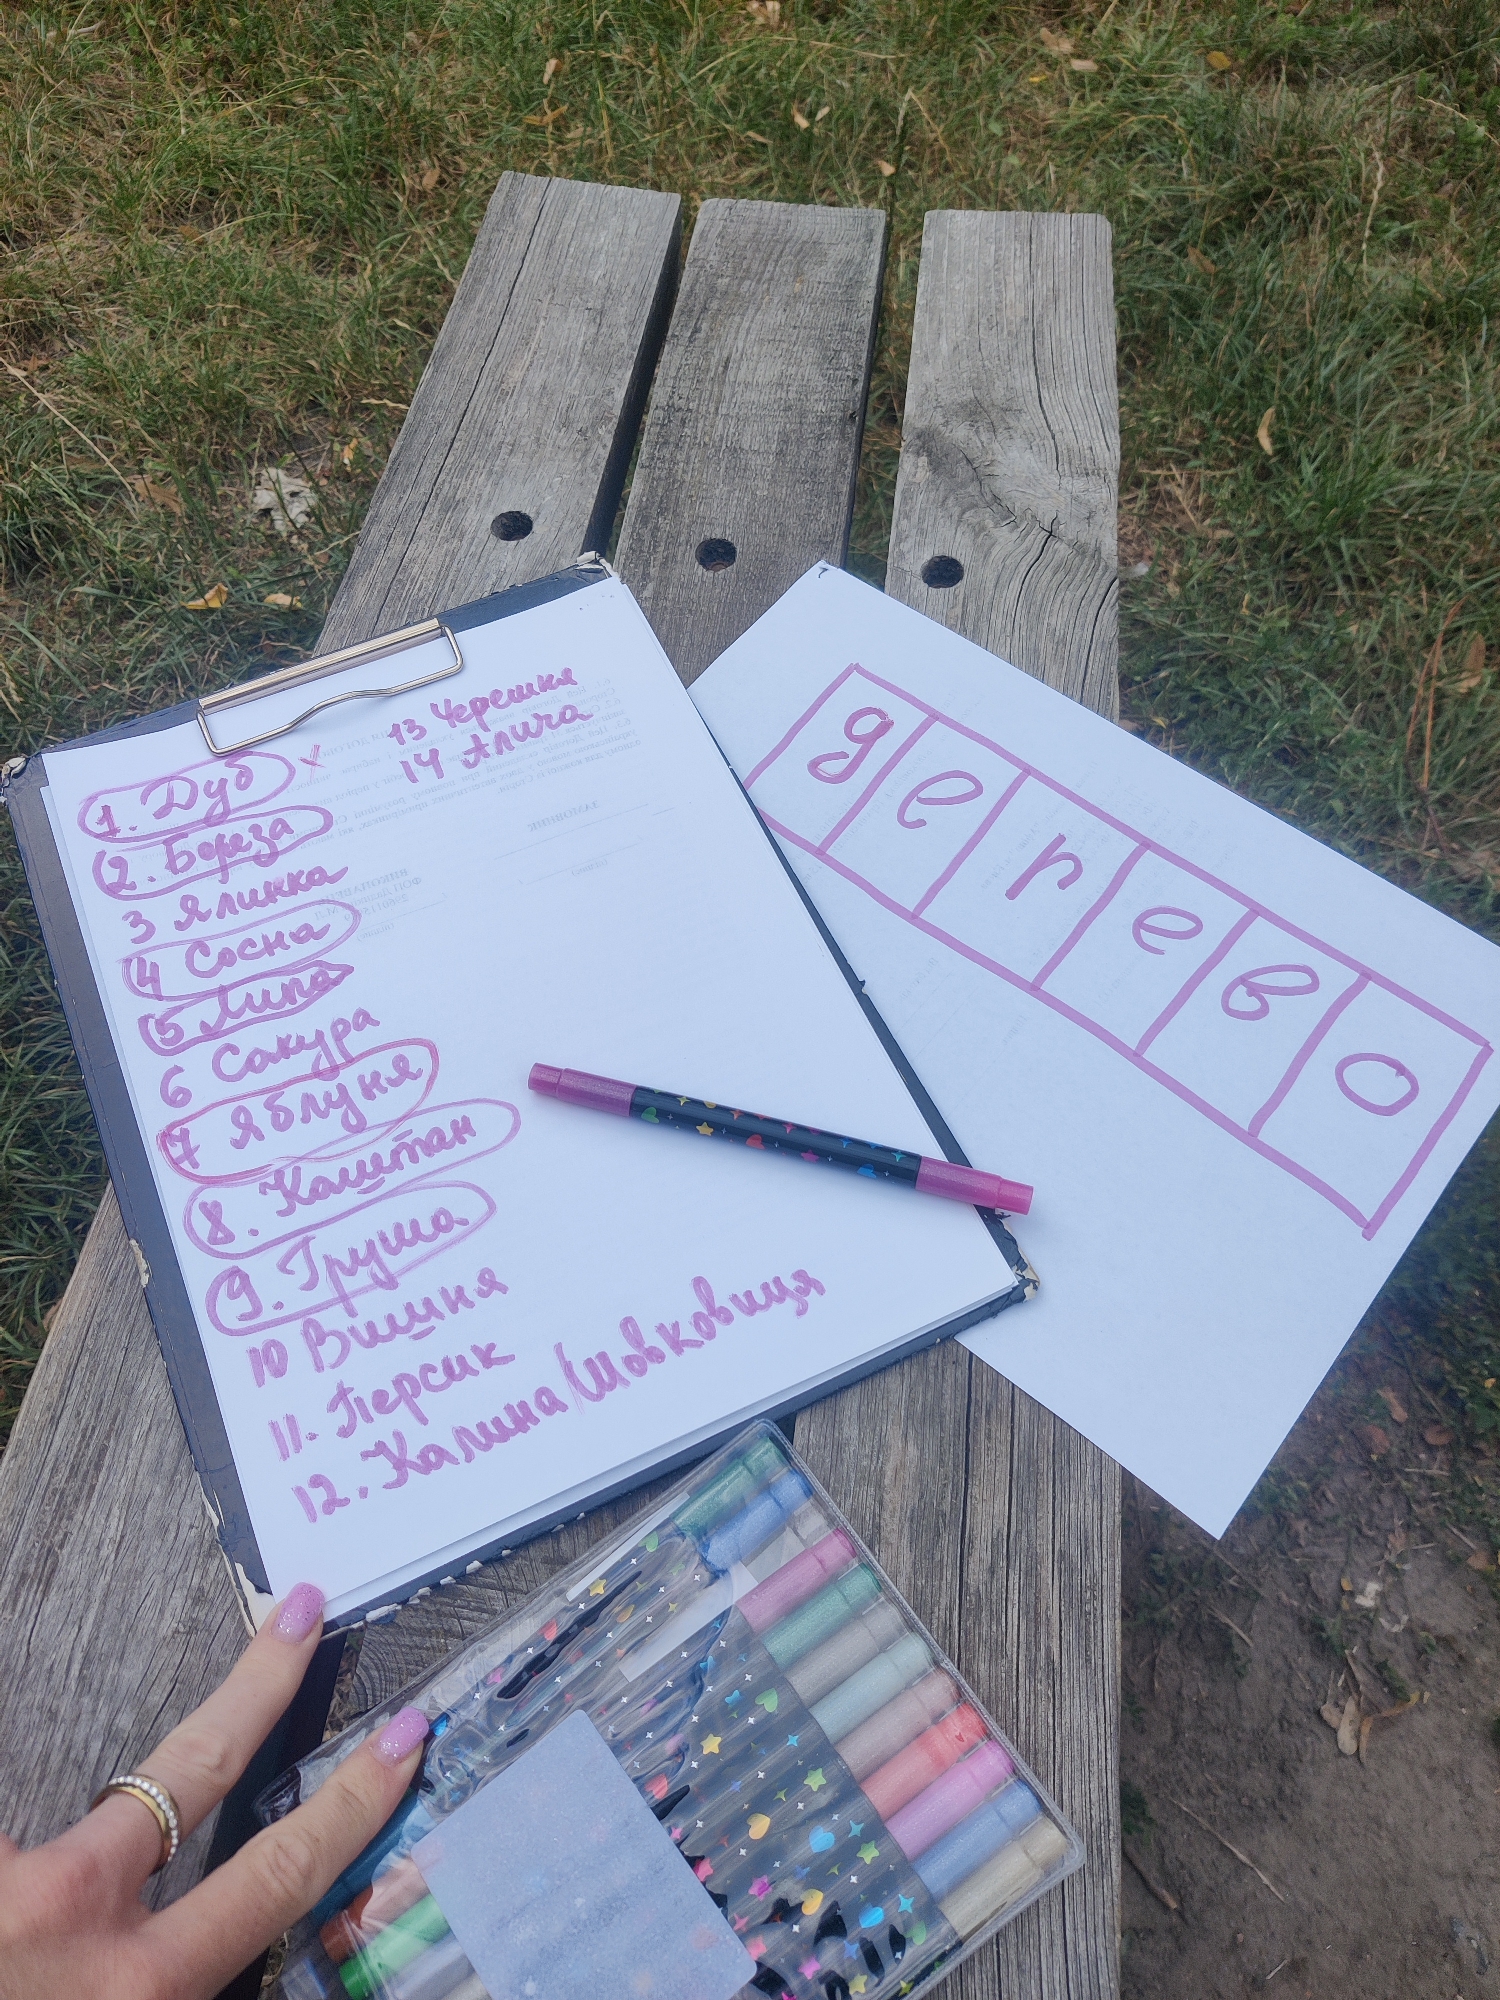 13 Черешня
14 Алича
1. Дуб x
2. Береза
3 Ялинка
4 Сосна
5 Липа
6 Сакура
7 Яблуня
8. Каштан
9. Груша
10 Вишня
11. Персик
12. Калина/Шовковиця
дерево